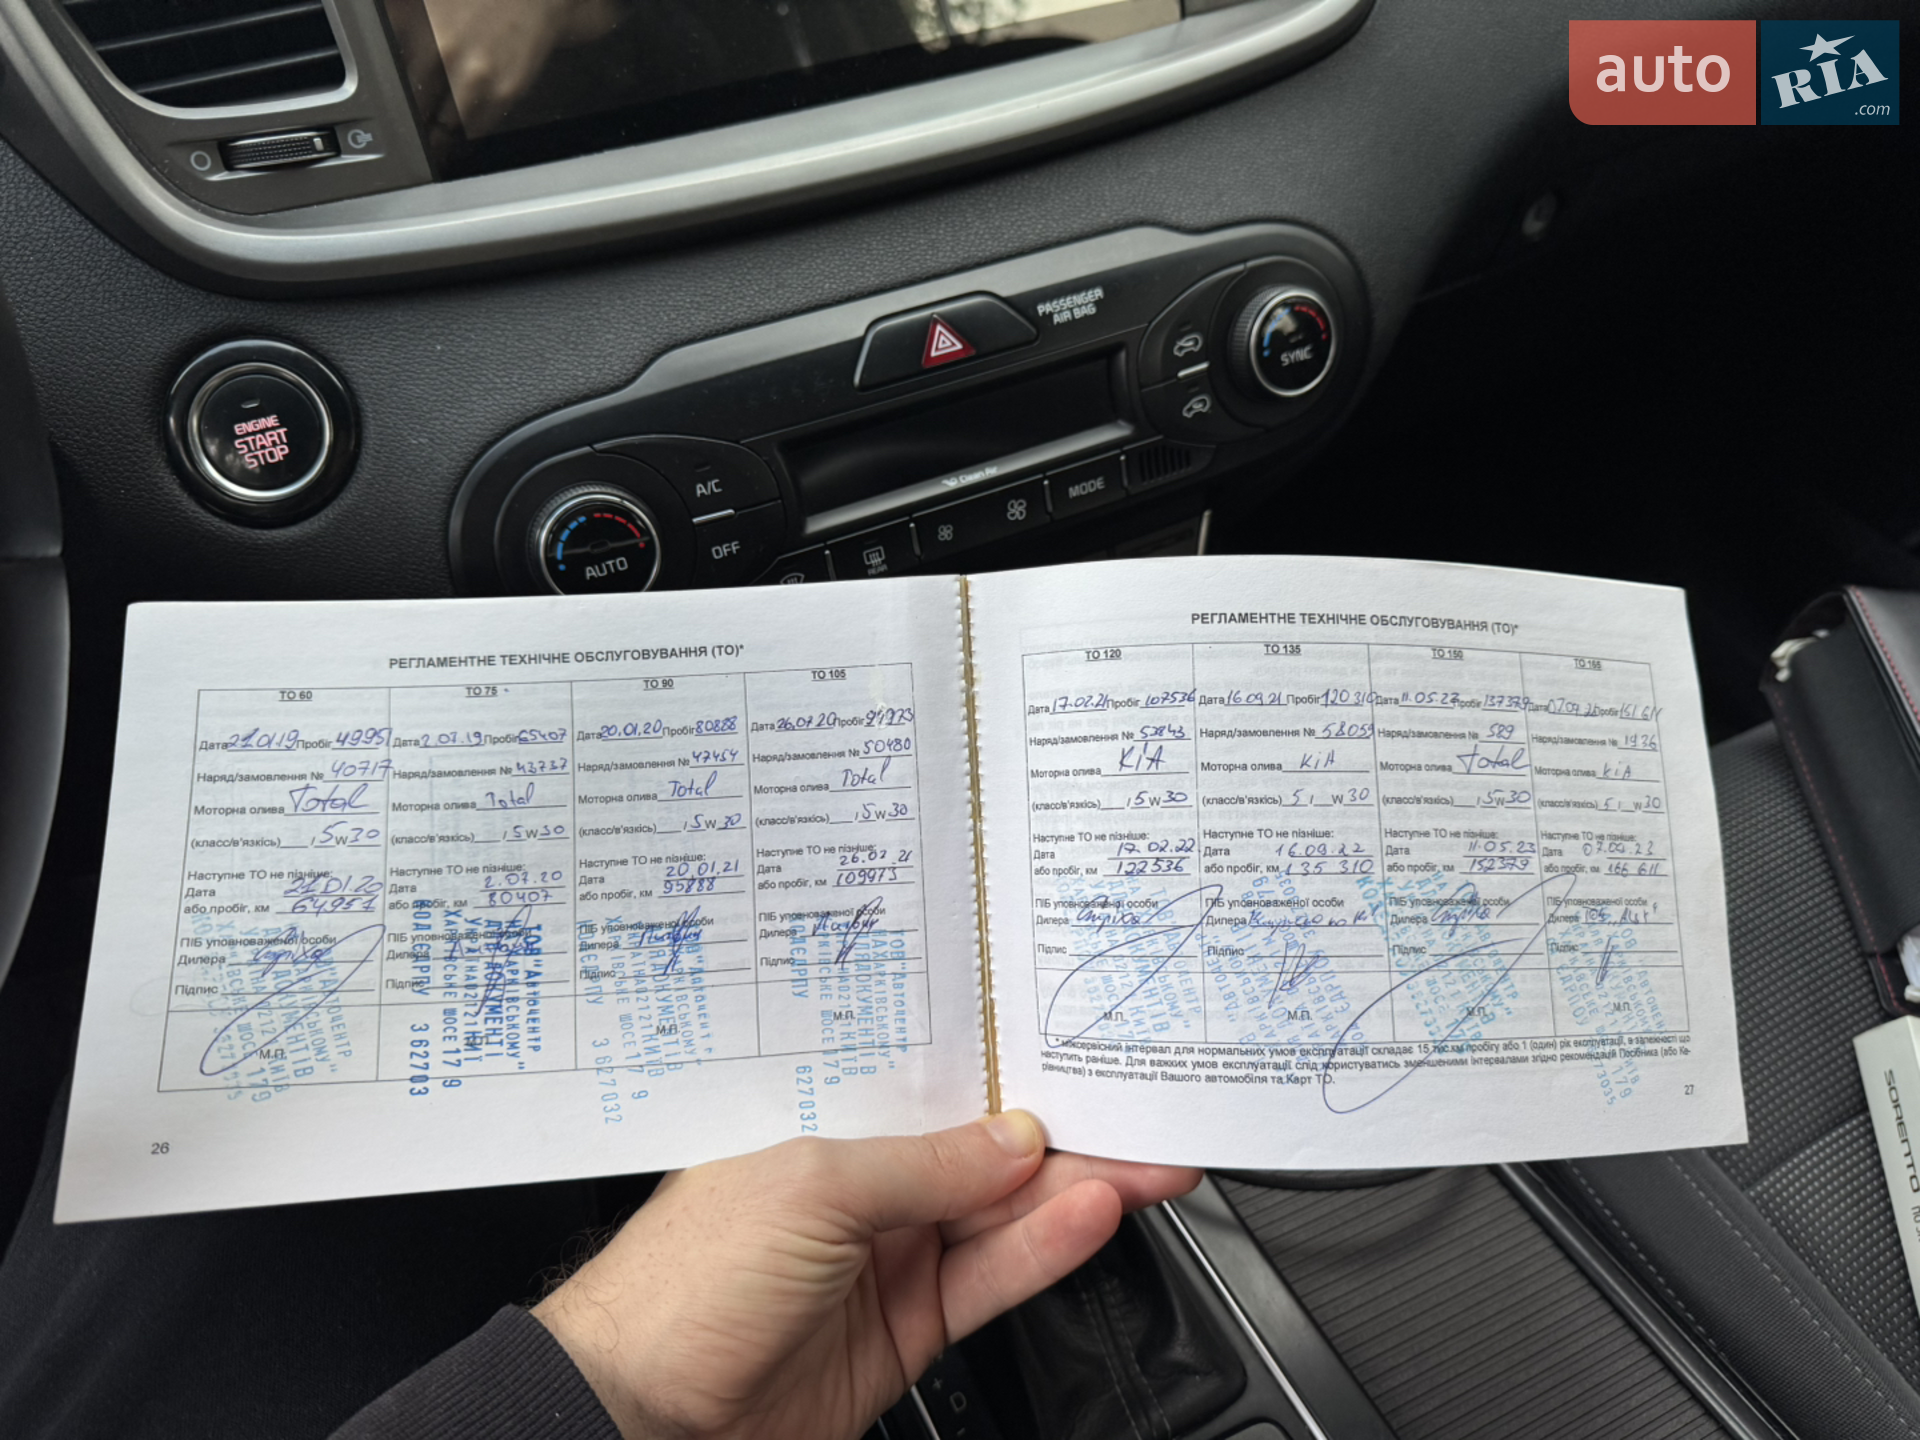 auto
RIA
.com
PASSENGER
AIR BAG
SYNC
ENGINE
START
STOP
A/C
Clean Air
MODE
OFF
AUTO
REAR
РЕГЛАМЕНТНЕ ТЕХНІЧНЕ ОБСЛУГОВУВАННЯ (ТО)*
ТО 60
Дата 21.01.19 Пробіг 49951
Наряд/замовлення № 40717
Моторна олива Total
(класс/в'язкість) , 5 W 30
Наступне ТО не пізніше:
Дата 21.01.20
або пробіг, км 64,951
ПІБ уповноваженої особи
Дилера
Підпис
М.П.
ТО 75
Дата 2.07.19 Пробіг 65407
Наряд/замовлення № 43737
Моторна олива Total
(класс/в'язкість) , 5 W 30
Наступне ТО не пізніше:
Дата 2.07.20
або пробіг, км 80407
ПІБ уповноваженої особи
Дилера
Підпис
ТО 90
Дата 20.01.20 Пробіг 80888
Наряд/замовлення № 47454
Моторна олива Total
(класс/в'язкість) , 5 W 30
Наступне ТО не пізніше:
Дата 20.01.21
або пробіг, км 95888
ПІБ уповноваженої особи
Дилера
Підпис
М.П.
ТО 105
Дата 26.07.20 Пробіг 94973
Наряд/замовлення № 50480
Моторна олива Total
(класс/в'язкість) , 5 W 30
Наступне ТО не пізніше:
Дата 26.07.21
або пробіг, км 109973
ПІБ уповноваженої особи
Дилера
Підпис
М.П.
26
РЕГЛАМЕНТНЕ ТЕХНІЧНЕ ОБСЛУГОВУВАННЯ (ТО)*
ТО 120
Дата 17.02.21 Пробіг 107536
Наряд/замовлення № 52843
Моторна олива KIA
(класс/в'язкість) , 5 W 30
Наступне ТО не пізніше:
Дата 17.02.22
або пробіг, км 122536
ПІБ уповноваженої особи
Дилера
Підпис
М.П.
ТО 135
Дата 16.09.21 Пробіг 120310
Наряд/замовлення № 58059
Моторна олива KiA
(класс/в'язкість) 5 , W 30
Наступне ТО не пізніше:
Дата 16.09.22
або пробіг, км 135 310
ПІБ уповноваженої особи
Дилера
Підпис
М.П.
ТО 150
Дата 11.05.22 Пробіг 137379
Наряд/замовлення № 589
Моторна олива Total
(класс/в'язкість) , 5 W 30
Наступне ТО не пізніше:
Дата 11.05.23
або пробіг, км 152379
ПІБ уповноваженої особи
Дилера
Підпис
М.П.
ТО 165
Дата Пробіг 151 611
Наряд/замовлення № 1936
Моторна олива KiA
(класс/в'язкість) 5 , W 30
Наступне ТО не пізніше:
Дата 07.09.23
або пробіг, км 166 611
ПІБ уповноваженої особи
Дилера
Підпис
М.П.
* міжсервісний інтервал для нормальних умов експлуатації складає 15 тис.км пробігу або 1 (один) рік експлуатації, в залежності що
наступить раніше. Для важких умов експлуатації слід користуватись зменшеними інтервалами згідно рекомендацій Посібника (або Ке-
рівництва) з експлуатації Вашого автомобіля та Карт ТО.
27
SORENTO
D